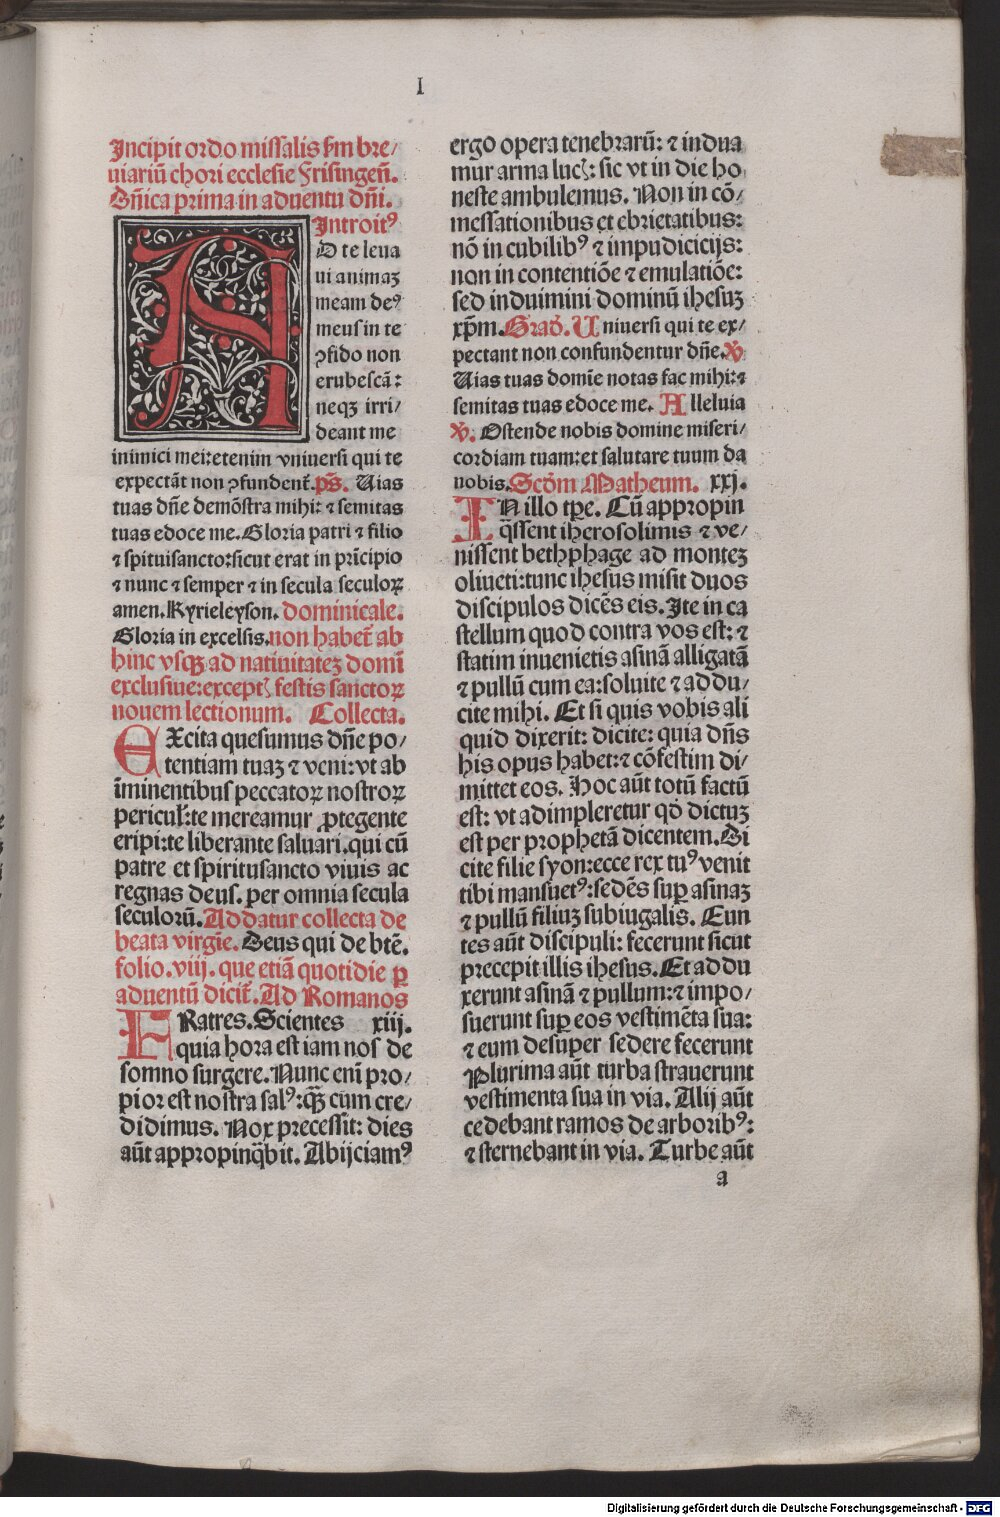 I
Incipit ordo missalis sm bre/
uiariū chori ecclesie Frisingeñ.
Dñica prima in aduentu dñi.
Introitꝰ
AD te leua
ui animaꝫ
meam deꝰ
meus in te
ꝯfido non
erubescā:
neqꝫ irri/
deant me
inimici mei: etenim vniuersi qui te
expectāt non ꝯfundent̄. ps̄. Uias
tuas dn̄e demōstra mihi: ⁊ semitas
tuas edoce me. Gloria patri ⁊ filio
⁊ spituisancto: sicut erat in prīcipio
⁊ nunc ⁊ semper ⁊ in secula seculoꝝ
amen. Kyrieleyson. dominicale.
Gloria in excelsis. non habet̄ ab
hinc vsqꝫ ad natiuitateꝫ domī
exclusiue: exceptꝭ festis sanctoꝝ
nouem lectionum. Collecta.
EXcita quesumus dn̄e po/
tentiam tuaꝫ ⁊ veni: vt ab
īminentibus peccatoꝝ nostroꝝ
pericul̛: te mereamur ꝓtegente
eripi: te liberante saluari. qui cū
patre et spiritusancto viuis ac
regnas deus. per omnia secula
seculorū. Addatur collecta de
beata virgīe. Deus qui de btē.
folio. viij. que etiā quotidie ꝑ
aduentū dicit̄. Ad Romanos
FRatres. Scientes xiij.
quia hora est iam nos de
somno surgere. Nunc enī pro/
pior est nostra salꝰ: qꝫ cum cre/
didimus. Nox precessit: dies
aūt appropinq̄bit. Abijciamꝰ
ergo opera tenebrarū: ⁊ indua
mur arma lucꝭ: sic vt in die ho
neste ambulemus. Non in cō/
messationibus et ebrietatibus:
nō in cubilibꝰ ⁊ impudicicijs:
non in contentiōe ⁊ emulatiōe:
sed induimini dominū ihesuꝫ
xp̄m. Grad̄. Uniuersi qui te ex/
pectant non confundentur dn̄e. ℣.
Uias tuas domīe notas fac mihi: ⁊
semitas tuas edoce me. Alleluia
℣. Ostende nobis domine miseri/
cordiam tuam: et salutare tuum da
nobis. Scdm̄ Matheum. xxj.
IN illo tp̄e. Cū appropin
q̄ssent iherosolimis ⁊ ve/
nissent bethphage ad monteꝫ
oliueti: tunc ihesus misit duos
discipulos dicēs eis. Ite in ca
stellum quod contra vos est: ⁊
statim inuenietis asinā alligatā
⁊ pullū cum ea: soluite ⁊ addu/
cite mihi. Et si quis vobis ali
quid dixerit: dicite: quia dn̄s
his opus habet: ⁊ cōfestim di/
mittet eos. Hoc aūt totū factū
est: vt adimpleretur qd̄ dictuꝫ
est per prophetā dicentem. Di
cite filie syon: ecce rex tuꝰ venit
tibi mansuetꝰ: sedēs suꝑ asinaꝫ
⁊ pullū filiuꝫ subiugalis. Eun
tes aūt discipuli: fecerunt sicut
precepit illis ihesus. Et addu
xerunt asinā ⁊ pullum: ⁊ impo/
suerunt suꝑ eos vestimēta sua:
⁊ eum desuper sedere fecerunt
Plurima aūt turba strauerunt
vestimenta sua in via. Alij aūt
cedebant ramos de arboribꝰ:
⁊ sternebant in via. Turbe aūt
a
Digitalisierung gefördert durch die Deutsche Forschungsgemeinschaft - DFG